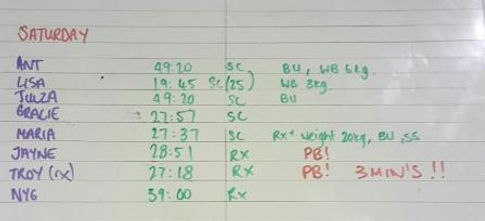 SATURDAY
ANT 49:20 SC BU, WB 6kg.
LISA 19:45 SC(25) WB 3kg
49:20 SC BU
GRACIE 27:57 SC
MARIA 27:37 SC Rx+ weight 20kg, BU, SS
JAYNE 28:51 RX PB!
TROY (rx) 27:18 RX PB! 3MIN'S !!
59:00 Rx